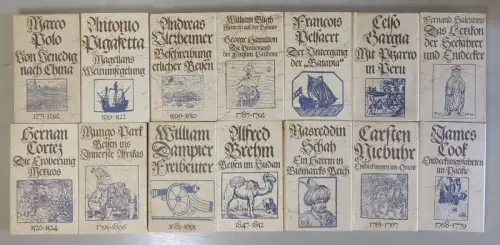 Marco
Polo
Von Venedig
nach China
1271-1292
Antonio
Pigafetta
Magellans
Weltumsegelung
1519-1522
Andreas
Ultzheimer
Beschreibung
etlicher Reisen
1596-1610
William Bligh
Meuterei auf der Bounty
George Hamilton
Die Piratenjagd
der Fregatte Pandora
1787-1792
François
Pelsaert
Der Untergang
der "Batavia"
Celso
Gargia
Mit Pizarro
in Peru
Fernand Salentiny
Das Lexikon
der Seefahrer
und Entdecker
Hernan
Cortez
Die Eroberung
Mexicos
1520-1524
Mungo Park
Reisen ins
Innerste Afrikas
1795-1806
William
Dampier
Freibeuter
1683-1691
Alfred
Brehm
Reisen im Sudan
1847-1852
Nasreddin
Schah
Ein Harem in
Bismarcks Reich
Carsten
Niebuhr
Entdeckungen im Orient
1761-1767
James
Cook
Entdeckungsfahrten
im Pacific
1768-1779